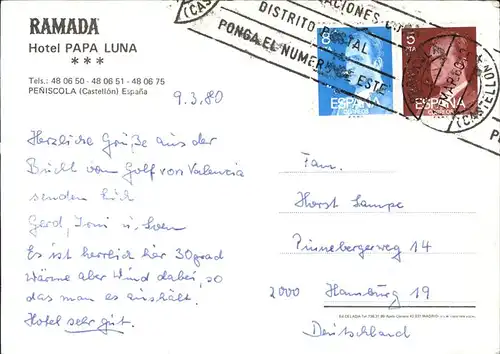 RAMADA
Hotel PAPA LUNA
***
Tels.: 48 06 50 - 48 06 51 - 48 06 75
PEÑISCOLA (Castellón) España
9.3.80
Herzliche Grüße aus der
Bucht vom Golf von Valencia
senden Euch
Gerd, Irmi u. Sven
Es ist herrlich hier 30 grad
Wärme aber Wind dabei, so
das man es aushält.
Hotel sehr gut.
DISTRITO POSTAL
PONGA EL NUMERO DE ESTE
8 PTA
ESPAÑA
CORREOS
5 PTA
ESPAÑA
CORREOS
(CASTELLON)
Fam.
Horst Lampe
Pinnebergerweg 14
2000 Hamburg 19
Deutschland